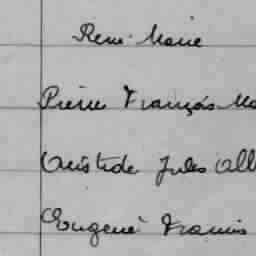 René Marie
Pierre François Ma
Aristide Jules Alb
Eugène Francis